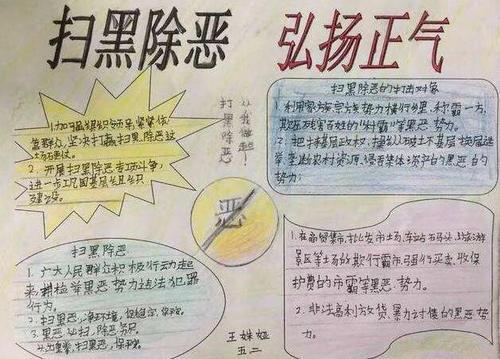 扫黑除恶 弘扬正气
1.加强组织领导,紧紧依
靠群众,坚决打赢扫黑除恶这
场硬仗。
2.开展扫黑除恶专项斗争,
进一步巩固基层组织
建设。
打黑除恶
从我做起!
扫黑除恶的打击对象
1.利用家族宗族势力横行乡里,称霸一方,
欺压残害百姓的"村霸"等黑恶势力。
2.把持基层政权,操纵破坏基层换届选
举,垄断农村资源,侵吞集体资产的黑恶
势力;
恶
扫黑除恶
1.广大人民群众积极行动起
来,检举黑恶势力违法犯罪
行为。
2.扫黑恶,净环境,促稳定,保
3.黑恶必扫,除恶务尽。
扫黑恶,保
1.在商贸集市、批发市场、车站码头、旅游
景区等场的欺行霸市,强行买卖,收保
护费的市霸等黑恶势力。
2.非法高利放贷,暴力讨债的黑恶势
力。
王姝娅
五二